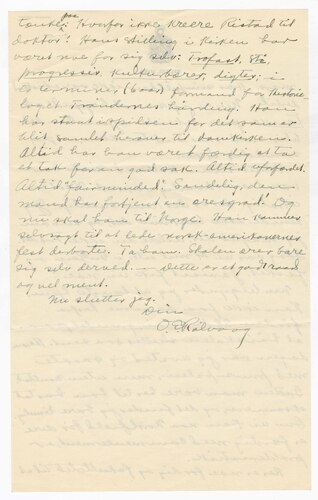 tanke: Hvorfor ikke kreere Ristad til
doktor? Hans stilling i kirken har
været noe for sig selv: Trofast,
progressiv, kulturbærer, digter; i
2 terminer (6 aar) formand for Historie
laget. Trøndernes høvding. Han
har støtet impulsen for det som er
blit samlet herover til Domkirken.
Altid har han været færdig at ta
et tak for en god sak. Altid uforfærdet.
Altid "fairminded". Sandelig, den
mand har fortjent en æresgrad. Og
nu skal han til Norge. Han kommer
selvsagt til at lede norsk-amerikanernes
fest derborte. Ta ham. Skolen ærer bare
sig selv derved. — Dette er et godt raad
og vel ment.
Nu slutter jeg.
Din
O. E. Rølvaag